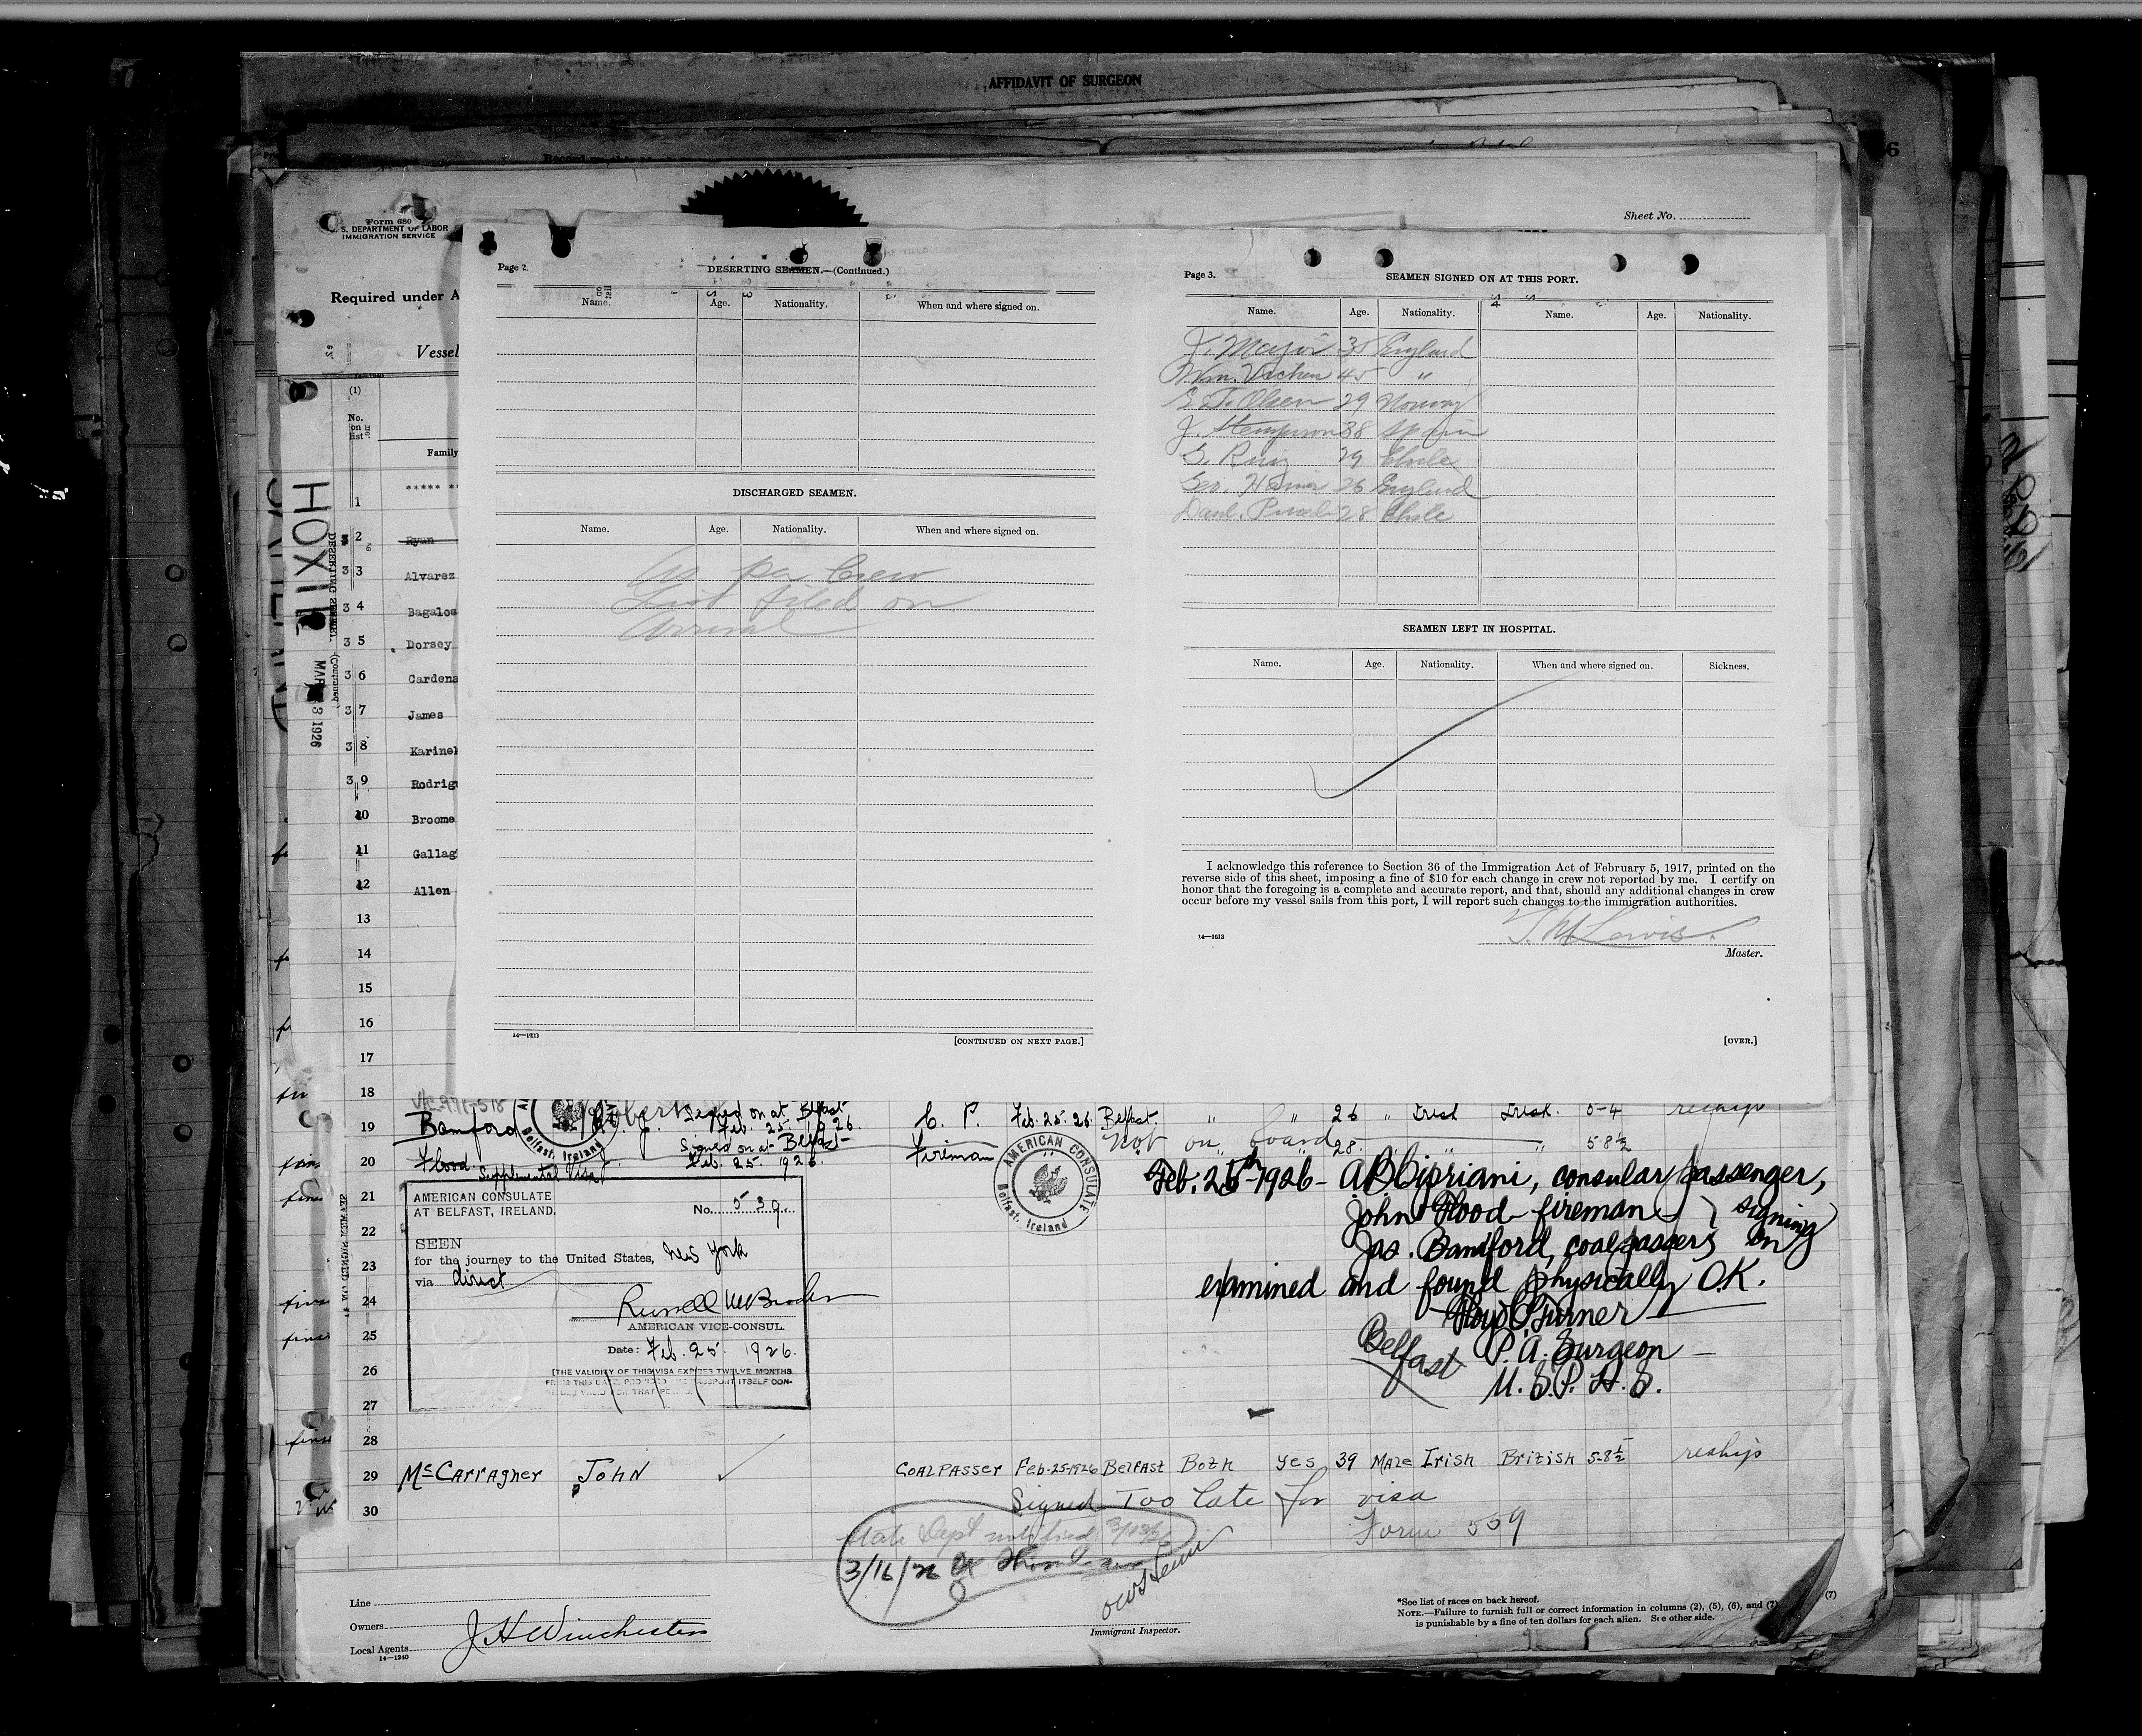 AFFIDAVIT OF SURGEON
6
Form 680
S. DEPARTMENT OF LABOR
IMMIGRATION SERVICE
Sheet No.
Required under A
Vessel
(1)
No. on list
Family
HOXIE
MAR 3 1926
DESERTING SEAMEN. (Continued)
1 ***** **
2 Ryan
3 3 Alvarez
3 4 Bagalos
3 5 Dorsey
3 6 Cardena
3 7 James
3 8 Karinel
3 9 Rodrig
10 Broome
11 Gallag
12 Allen
13
14
15
16
17
18
Page 2.
DESERTING SEAMEN.—(Continued.)
Name. Age. Nationality. When and where signed on.
DISCHARGED SEAMEN.
Name. Age. Nationality. When and where signed on.
As per Crew
List filed on
arrival
14—1613
[CONTINUED ON NEXT PAGE.]
Page 3.
SEAMEN SIGNED ON AT THIS PORT.
Name. Age. Nationality. Name. Age. Nationality.
J. Major 35 England
Wm. 45 "
Olsen 29 Norway
J. 38 Spain
S. Ruiz 29 Chile
Geo. 26 England
Danl. 28 Chile
SEAMEN LEFT IN HOSPITAL.
Name. Age. Nationality. When and where signed on. Sickness.
I acknowledge this reference to Section 36 of the Immigration Act of February 5, 1917, printed on the
reverse side of this sheet, imposing a fine of $10 for each change in crew not reported by me. I certify on
honor that the foregoing is a complete and accurate report, and that, should any additional changes in crew
occur before my vessel sails from this port, I will report such changes to the immigration authorities.
T. M Lewis.
14—1613
Master.
[OVER.]
Signed on at Belfast
19 Bamford J. Feb. 25. 1926. C. P. Feb. 25. 26. Belfast. " " 26 " Irish Irish. 5-4 reships
Signed on at Belfast
20 Flood J. Feb. 25. 1926. Fireman Not on board 28. " " 5 8½
Supplemental Visa
21
22
23
24
25
26
27
28
AMERICAN CONSULATE
AT BELFAST, IRELAND.
No. 539.
SEEN
for the journey to the United States, New York
via direct
AMERICAN VICE-CONSUL.
Date: Feb. 25. 1926.
[THE VALIDITY OF THIS VISA EXPIRES TWELVE MONTHS
FROM THIS DATE, PROVIDED THE PASSPORT ITSELF CON-
AMERICAN CONSULATE
Belfast, Ireland
Feb. 25th 1926 - A B Cipriani, consular passenger,
John Flood - fireman } signing
Jas. Bamford, coalpassers on
examined and found physically O.K.
Floyd C. Turner
Belfast P. A. Surgeon
U. S. P. H. S.
29 McCarragher John ✓ COALPASSER Feb-25-1926 Belfast Both yes 39 Male Irish British 5-8½ reships
30 Signed Too late for visa
Form 559
State Dept notified 3/13/26
3/16/26
Line
Owners
Local Agents J H Winchester
14—1240
Immigrant Inspector.
*See list of races on back hereof.
NOTE.—Failure to furnish full or correct information in columns (2), (5), (6), and (7)
is punishable by a fine of ten dollars for each alien. See other side.
(7)